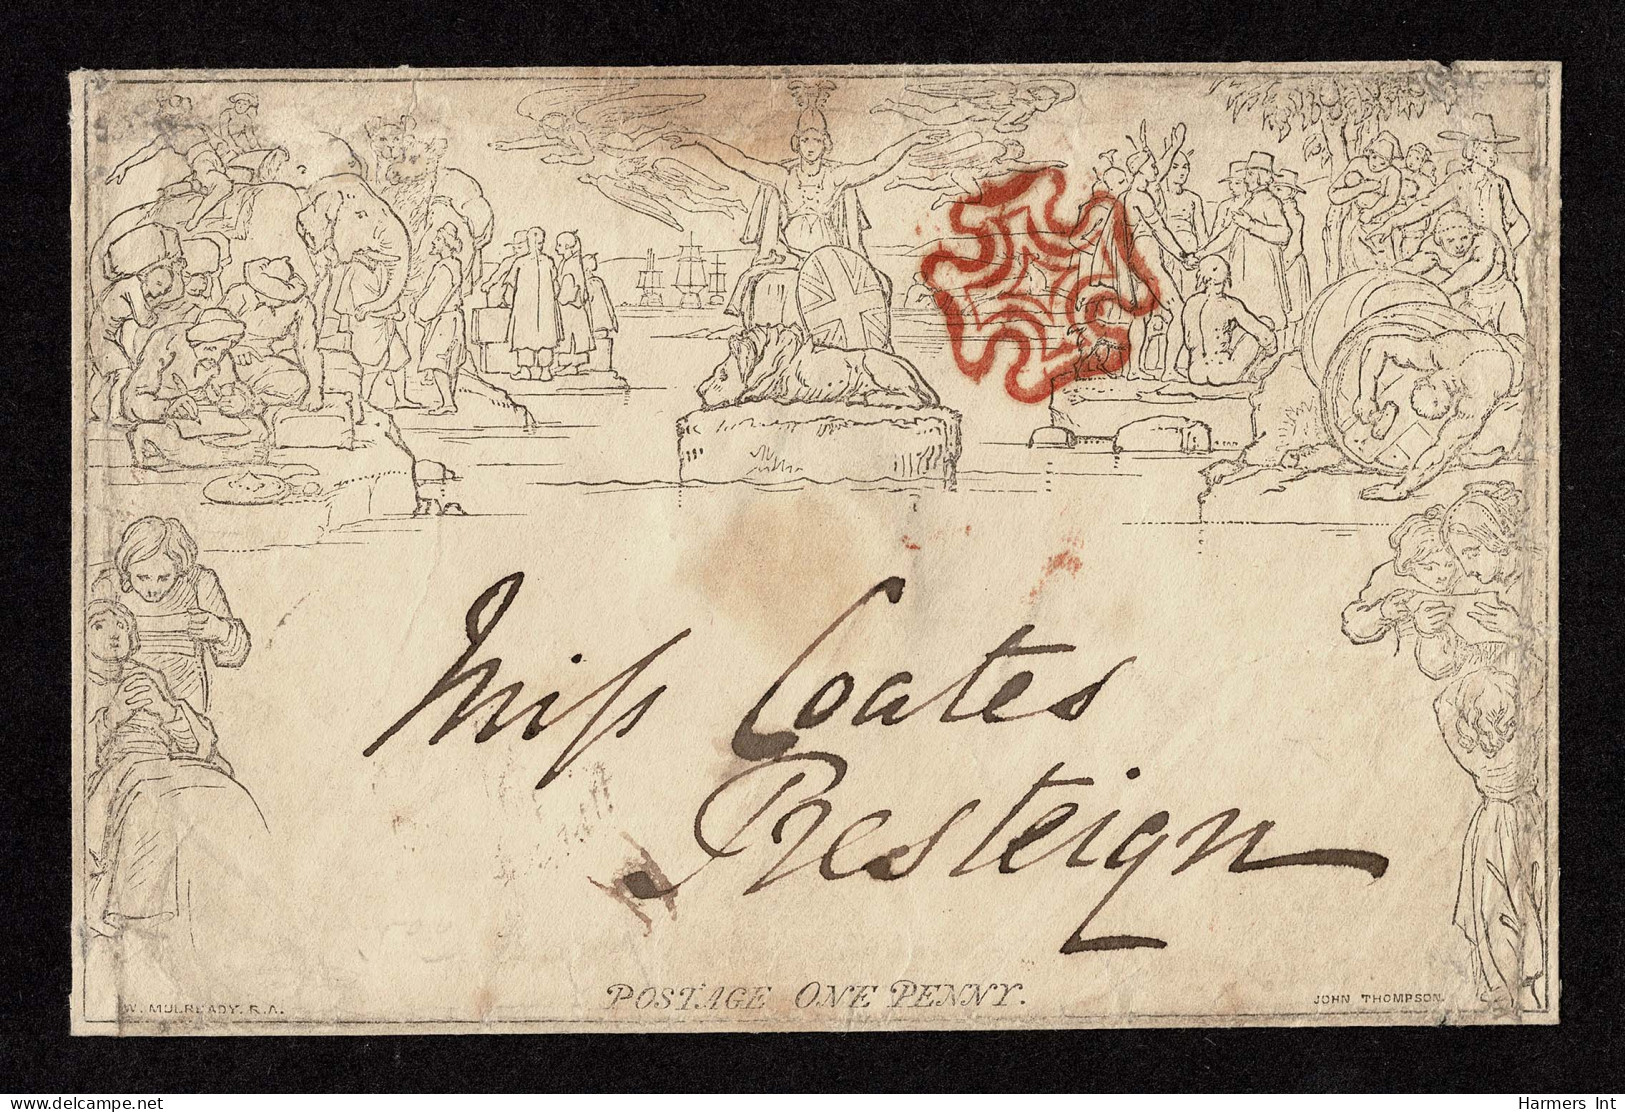 Miſs Coates
Presteign
POSTAGE ONE PENNY.
W. MULREADY. R.A.
JOHN THOMPSON.
delcampe.net
Harmers Int